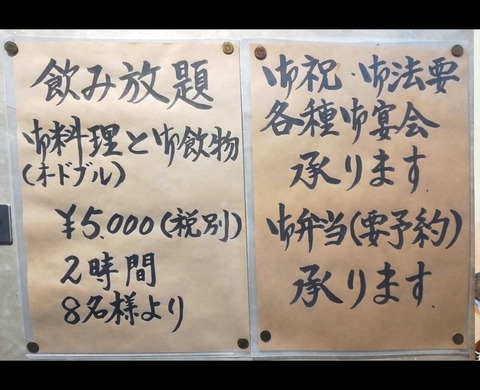 飲み放題
御料理と御飲物
(オードブル)
¥5.000(税別)
2時間
8名様より
御祝・御法要
各種御宴会
承ります.
御弁当(要予約)
承ります.